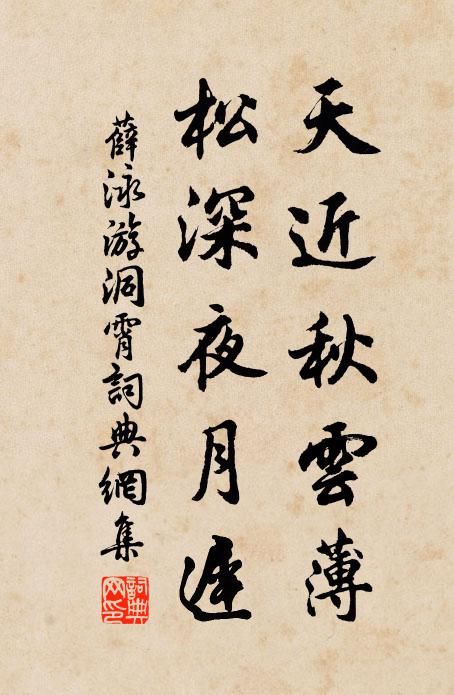 天近秋雲薄
松深夜月遲
薛泳游洞霄詞典網集
詞典
网印